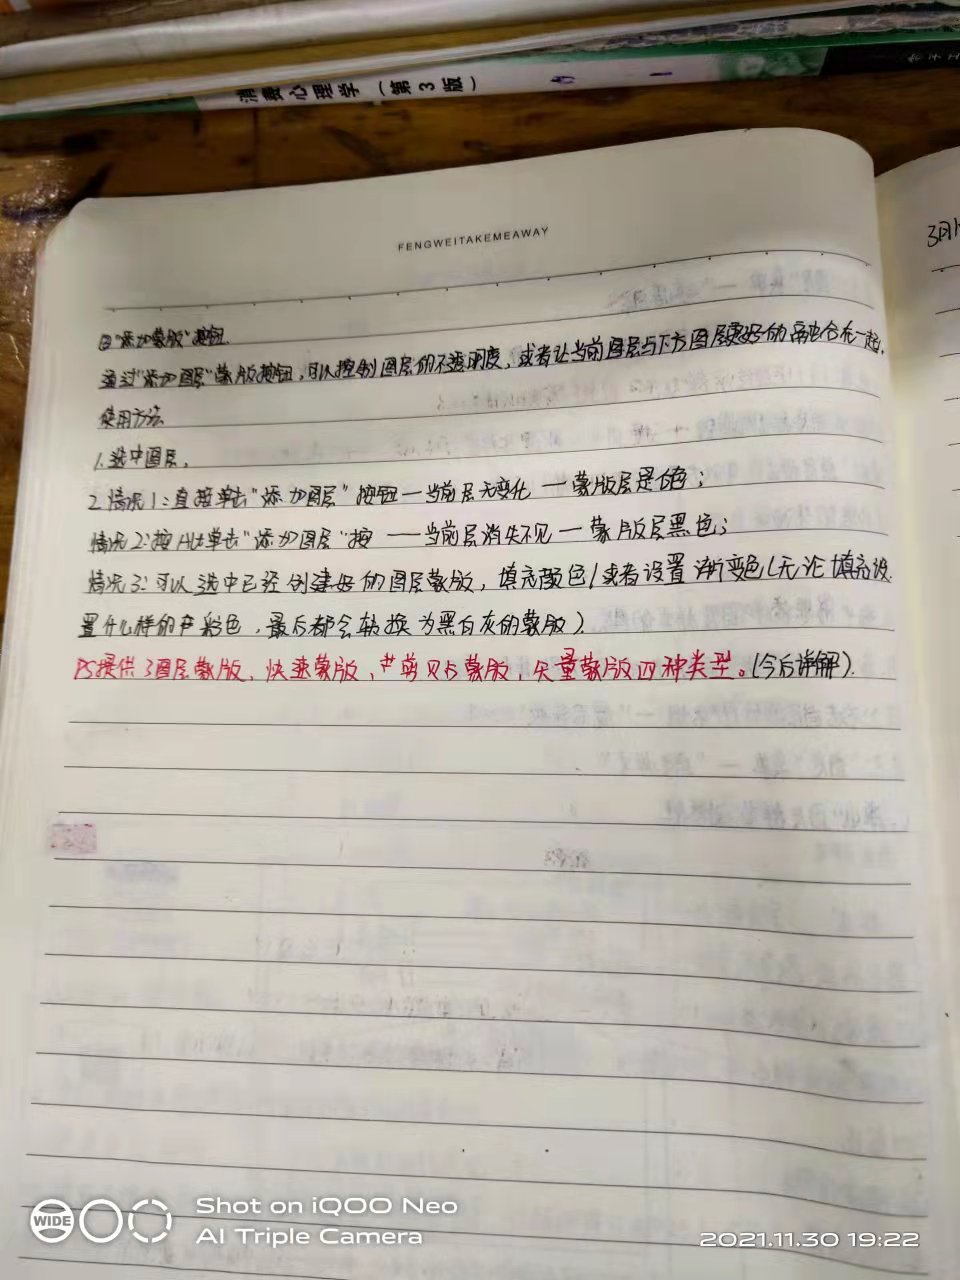 消费心理学（第3版）
FENGWEITAKEMEAWAY
3月1
②"添加蒙版"按钮.
通过"添加图层"蒙版按钮,可以控制图层的不透明度,或者让当前图层与下方图层更好的融合在一起.
使用方法
1.选中图层,
2.情况1:直接单击"添加图层"按钮—当前层无变化—蒙版层是白色;
情况2:按Alt单击"添加图层"按—当前层消失不见—蒙版层黑色;
情况3:可以选中已经创建好的图层蒙版,填充颜色/或者设置渐变色(无论填充设
置什么样的彩色,最后都会转换为黑白灰的蒙版).
PS提供3图层蒙版、快速蒙版、剪贴蒙版、矢量蒙版四种类型。(今后详解).
WIDE
Shot on iQOO Neo
AI Triple Camera
2021.11.30 19:22